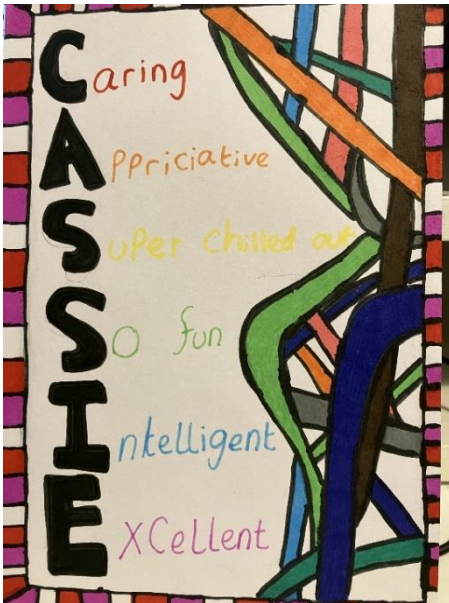 Caring
Appriciative
Super chilled out
So fun
Intelligent
EXCellent